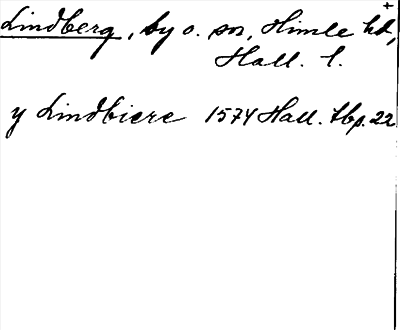 Lindberg, by o. sn, Himle hd,
Hall. l.
y Lindbiere 1574 Hall. tbp. 22